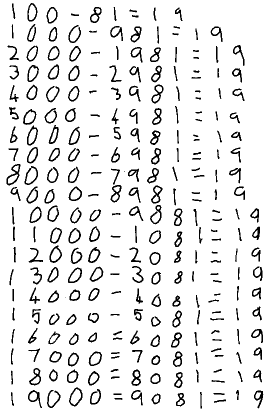 100-81=19
1000-981=19
2000-1981=19
3000-2981=19
4000-3981=19
5000-4981=19
6000-5981=19
7000-6981=19
8000-7981=19
9000-8981=19
10000-9881=19
11000-1081=19
12000-2081=19
13000-3081=19
14000-4081=19
15000-5081=19
16000=6081=19
17000=7081=19
18000=8081=19
19000=9081=19